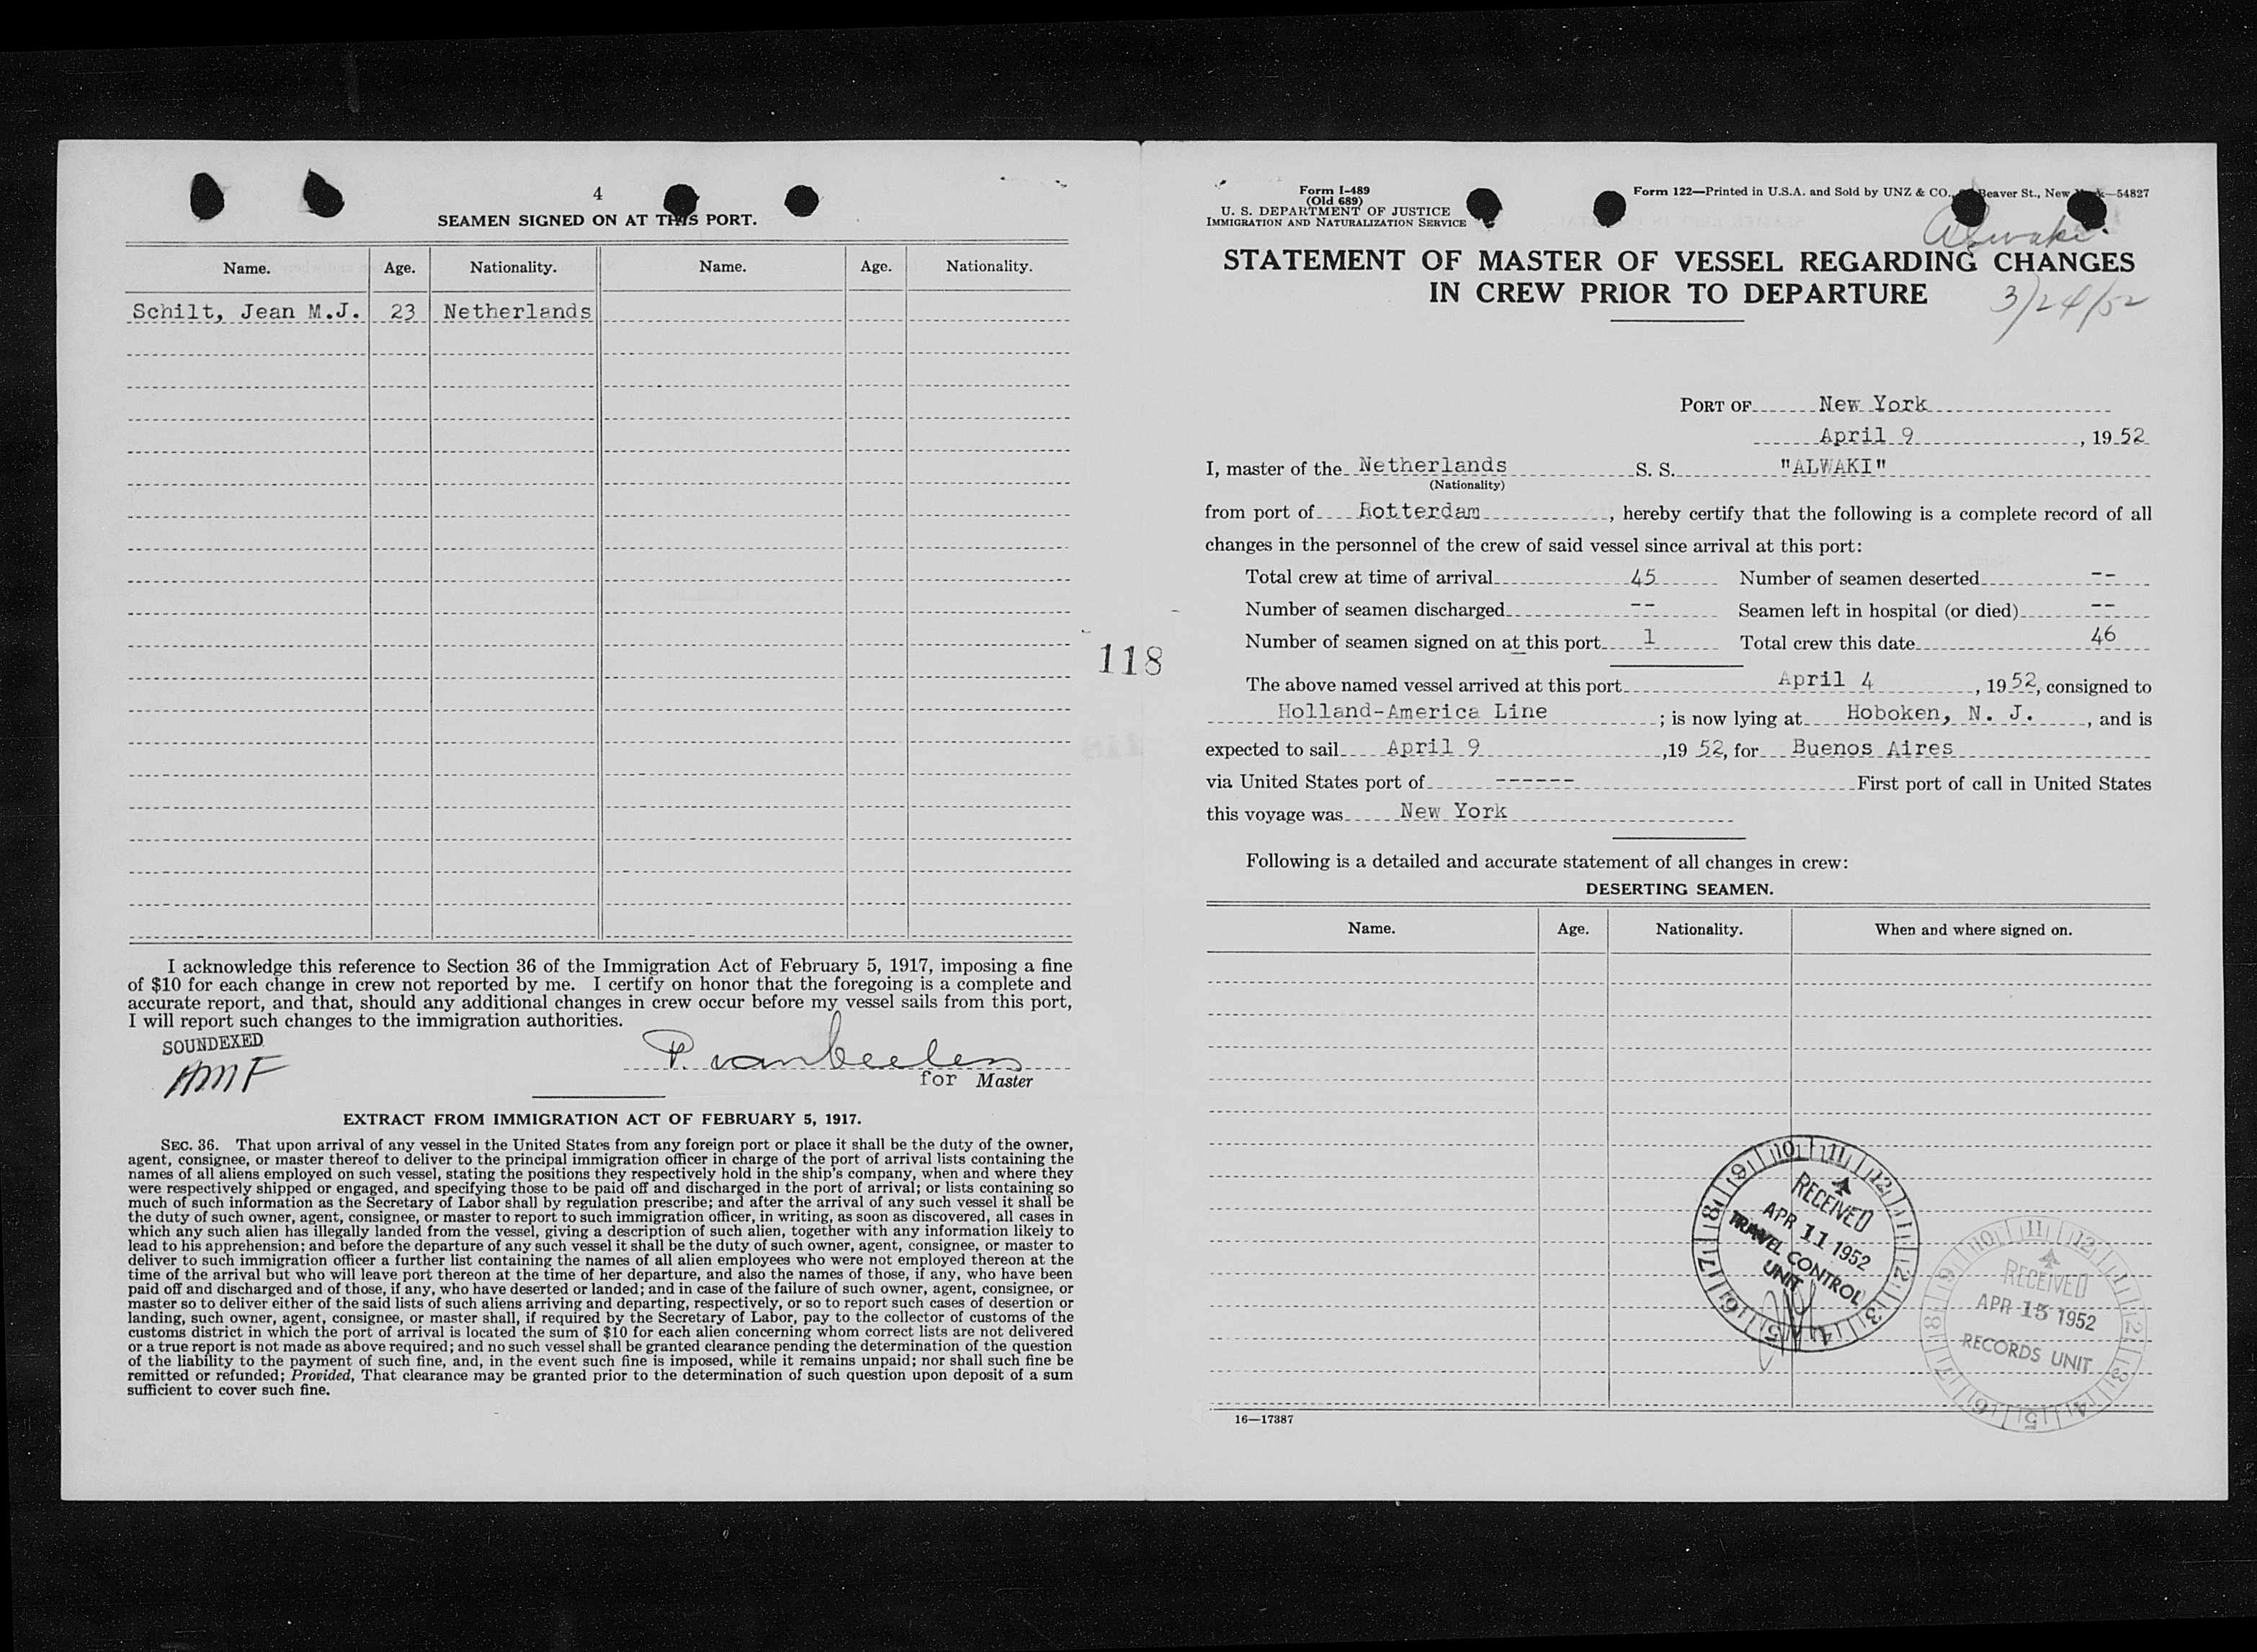 4
SEAMEN SIGNED ON AT THIS PORT.
Name. Age. Nationality. Name. Age. Nationality.
Schilt, Jean M.J. 23 Netherlands
I acknowledge this reference to Section 36 of the Immigration Act of February 5, 1917, imposing a fine
of $10 for each change in crew not reported by me. I certify on honor that the foregoing is a complete and
accurate report, and that, should any additional changes in crew occur before my vessel sails from this port,
I will report such changes to the immigration authorities.
SOUNDEXED
AMF
P. van
for Master
EXTRACT FROM IMMIGRATION ACT OF FEBRUARY 5, 1917.
SEC. 36. That upon arrival of any vessel in the United States from any foreign port or place it shall be the duty of the owner,
agent, consignee, or master thereof to deliver to the principal immigration officer in charge of the port of arrival lists containing the
names of all aliens employed on such vessel, stating the positions they respectively hold in the ship's company, when and where they
were respectively shipped or engaged, and specifying those to be paid off and discharged in the port of arrival; or lists containing so
much of such information as the Secretary of Labor shall by regulation prescribe; and after the arrival of any such vessel it shall be
the duty of such owner, agent, consignee, or master to report to such immigration officer, in writing, as soon as discovered, all cases in
which any such alien has illegally landed from the vessel, giving a description of such alien, together with any information likely to
lead to his apprehension; and before the departure of any such vessel it shall be the duty of such owner, agent, consignee, or master to
deliver to such immigration officer a further list containing the names of all alien employees who were not employed thereon at the
time of the arrival but who will leave port thereon at the time of her departure, and also the names of those, if any, who have been
paid off and discharged and of those, if any, who have deserted or landed; and in case of the failure of such owner, agent, consignee, or
master so to deliver either of the said lists of such aliens arriving and departing, respectively, or so to report such cases of desertion or
landing, such owner, agent, consignee, or master shall, if required by the Secretary of Labor, pay to the collector of customs of the
customs district in which the port of arrival is located the sum of $10 for each alien concerning whom correct lists are not delivered
or a true report is not made as above required; and no such vessel shall be granted clearance pending the determination of the question
of the liability to the payment of such fine, and, in the event such fine is imposed, while it remains unpaid; nor shall such fine be
remitted or refunded; Provided, That clearance may be granted prior to the determination of such question upon deposit of a sum
sufficient to cover such fine.
118
Form I-489
(Old 689)
U. S. DEPARTMENT OF JUSTICE
IMMIGRATION AND NATURALIZATION SERVICE
Form 122—Printed in U.S.A. and Sold by UNZ & CO., Beaver St., New —54827
Alwaki.
STATEMENT OF MASTER OF VESSEL REGARDING CHANGES
IN CREW PRIOR TO DEPARTURE
3/24/52
PORT OF New York
April 9, 1952
I, master of the Netherlands S. S. "ALWAKI"
(Nationality)
from port of Rotterdam, hereby certify that the following is a complete record of all
changes in the personnel of the crew of said vessel since arrival at this port:
Total crew at time of arrival 45 Number of seamen deserted --
Number of seamen discharged -- Seamen left in hospital (or died) --
Number of seamen signed on at this port 1 Total crew this date 46
The above named vessel arrived at this port April 4, 1952, consigned to
Holland-America Line; is now lying at Hoboken, N. J., and is
expected to sail April 9, 1952, for Buenos Aires
via United States port of ------ First port of call in United States
this voyage was New York
Following is a detailed and accurate statement of all changes in crew:
DESERTING SEAMEN.
Name. Age. Nationality. When and where signed on.
9 10 11 12 1 2 3 4 5 6 7 8
RECEIVED
APR 11 1952
TRAVEL CONTROL
UNIT
9 10 11 12 1 2 3 4 5 6 7 8
RECEIVED
APR 15 1952
RECORDS UNIT
16—17387